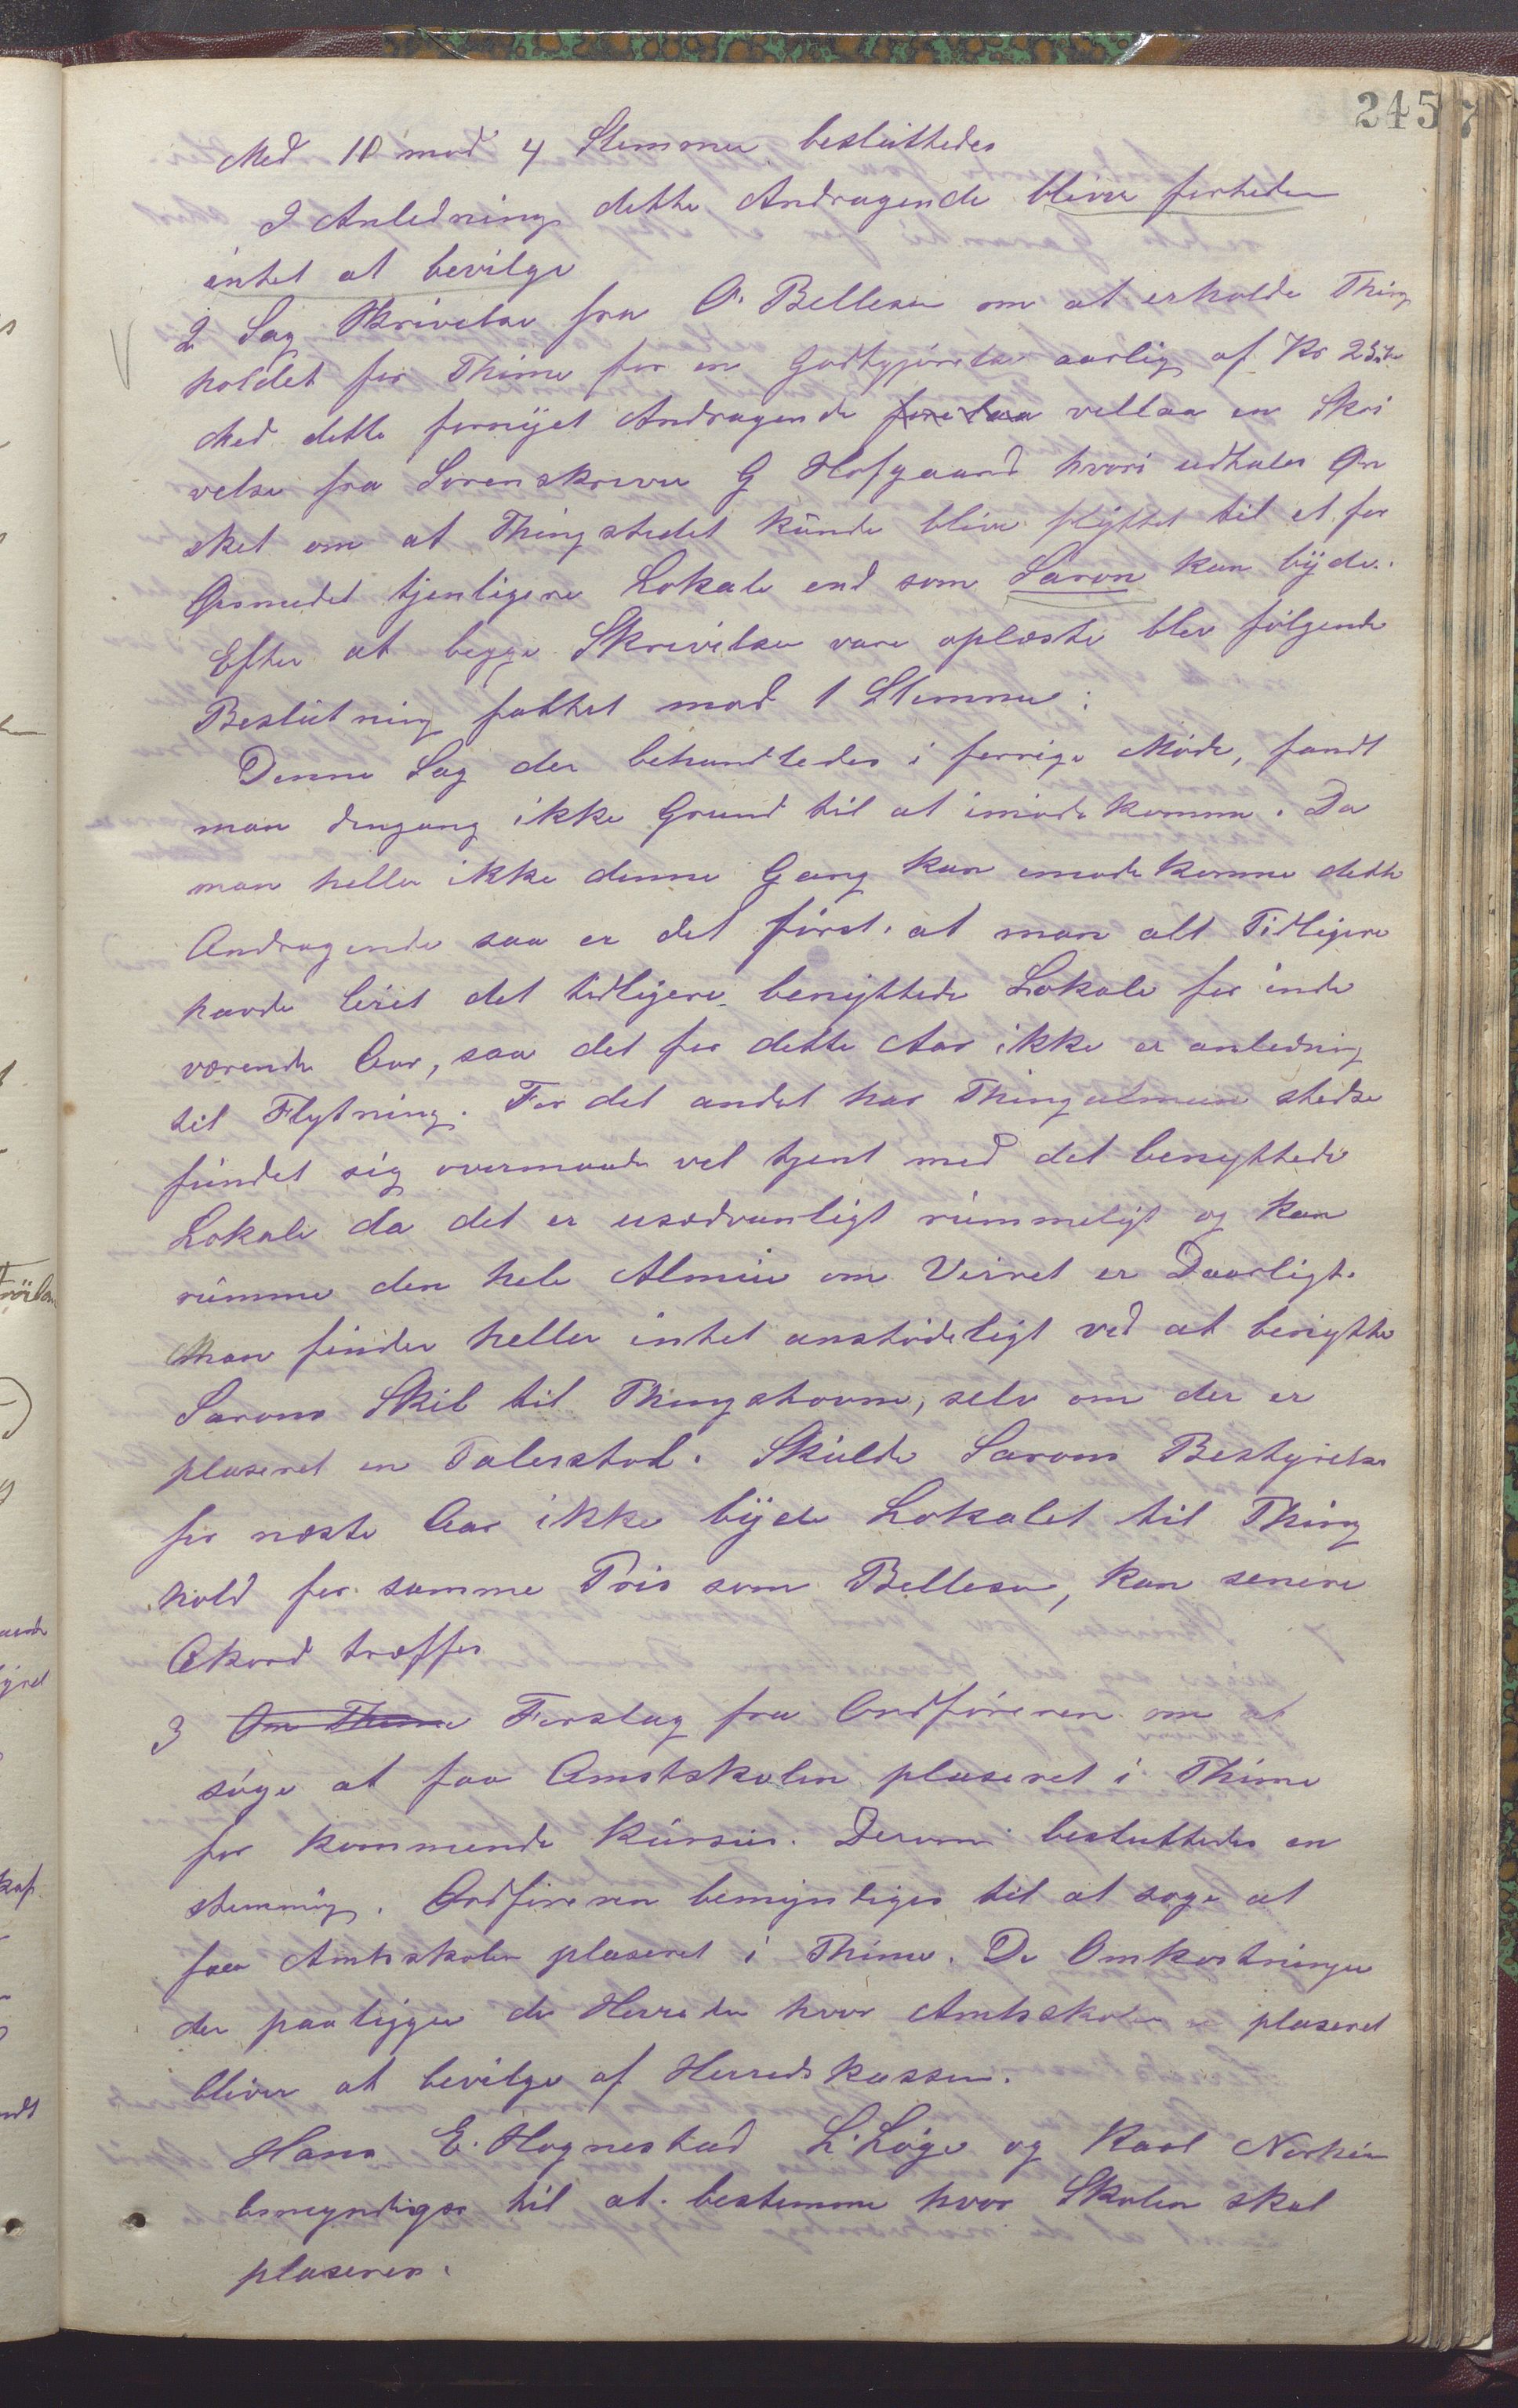 245
Med 10 mod 4 Stemmer besluttedes
I Anledning dette Andragende bliver forheden
intet at bevilge
2 Sag Skrivelse fra O. Bellesen om at erholde Thing
holdet for Thime for en Godtgjörelse aarlig af Kr 25
Med dette fornyet Andragende fore laa vellaa en Skri
velse fra Sorenskriver G Hofgaard hvori udtales Øn
sket om at Thingstedet kunde blive flyttet til et for
Øiemedet tjenligere Lokale end som Saron kan byde.
Efter at begge Skrivelser vare oplæste blev fölgende
Beslutning fattet mod 1 Stemme:
Denne Sag der behandledes i forrige Möde, fandt
man dengang ikke Grund til at imödekomme. Da
man heller ikke denne Gang kan imödekomme dette
Andragende saa er det först at man alt Tidligere
havde leiet det tidligere benyttede Lokale for inde
værende Aar, saa det for dette Aar ikke er anledning
til Flytning. For det andet har Thingalmuen stedse
fundet sig overmaade vel tjent med det benyttede
Lokale da det er usædvanligt rummeligt og kan
rumme den hele Almue om Veiret er Daarligt.
Man finder heller intet anstödeligt ved at benytte
Sarons Skib til Thingstovne, selv om der er
plaseret en Talerstol. Skulde Sarons Bestyrelse
for næste Aar ikke byde Lokalet til Thing
hold for samme Pris som Bellesen, kan senere
Akord træffes
3 Om Thime Forslag fra Ordföreren om at
söge at faa Amstskolen plaseret i Thime
for kommende kursus. Derom besluttedes en
stemmig. Ordföreren bemyntiges til at söge at
faa Amtsskolen plaseret i Thime. De Omkostninger
der paaligger de Herreder hvor Amtsskolen er plaseret
bliver at bevilge af Herredskassen.
Hans E. Hognestad L. Löge og Karl Norheim
bemyndiges til at bestemme hvor Skolen skal
plaseres.